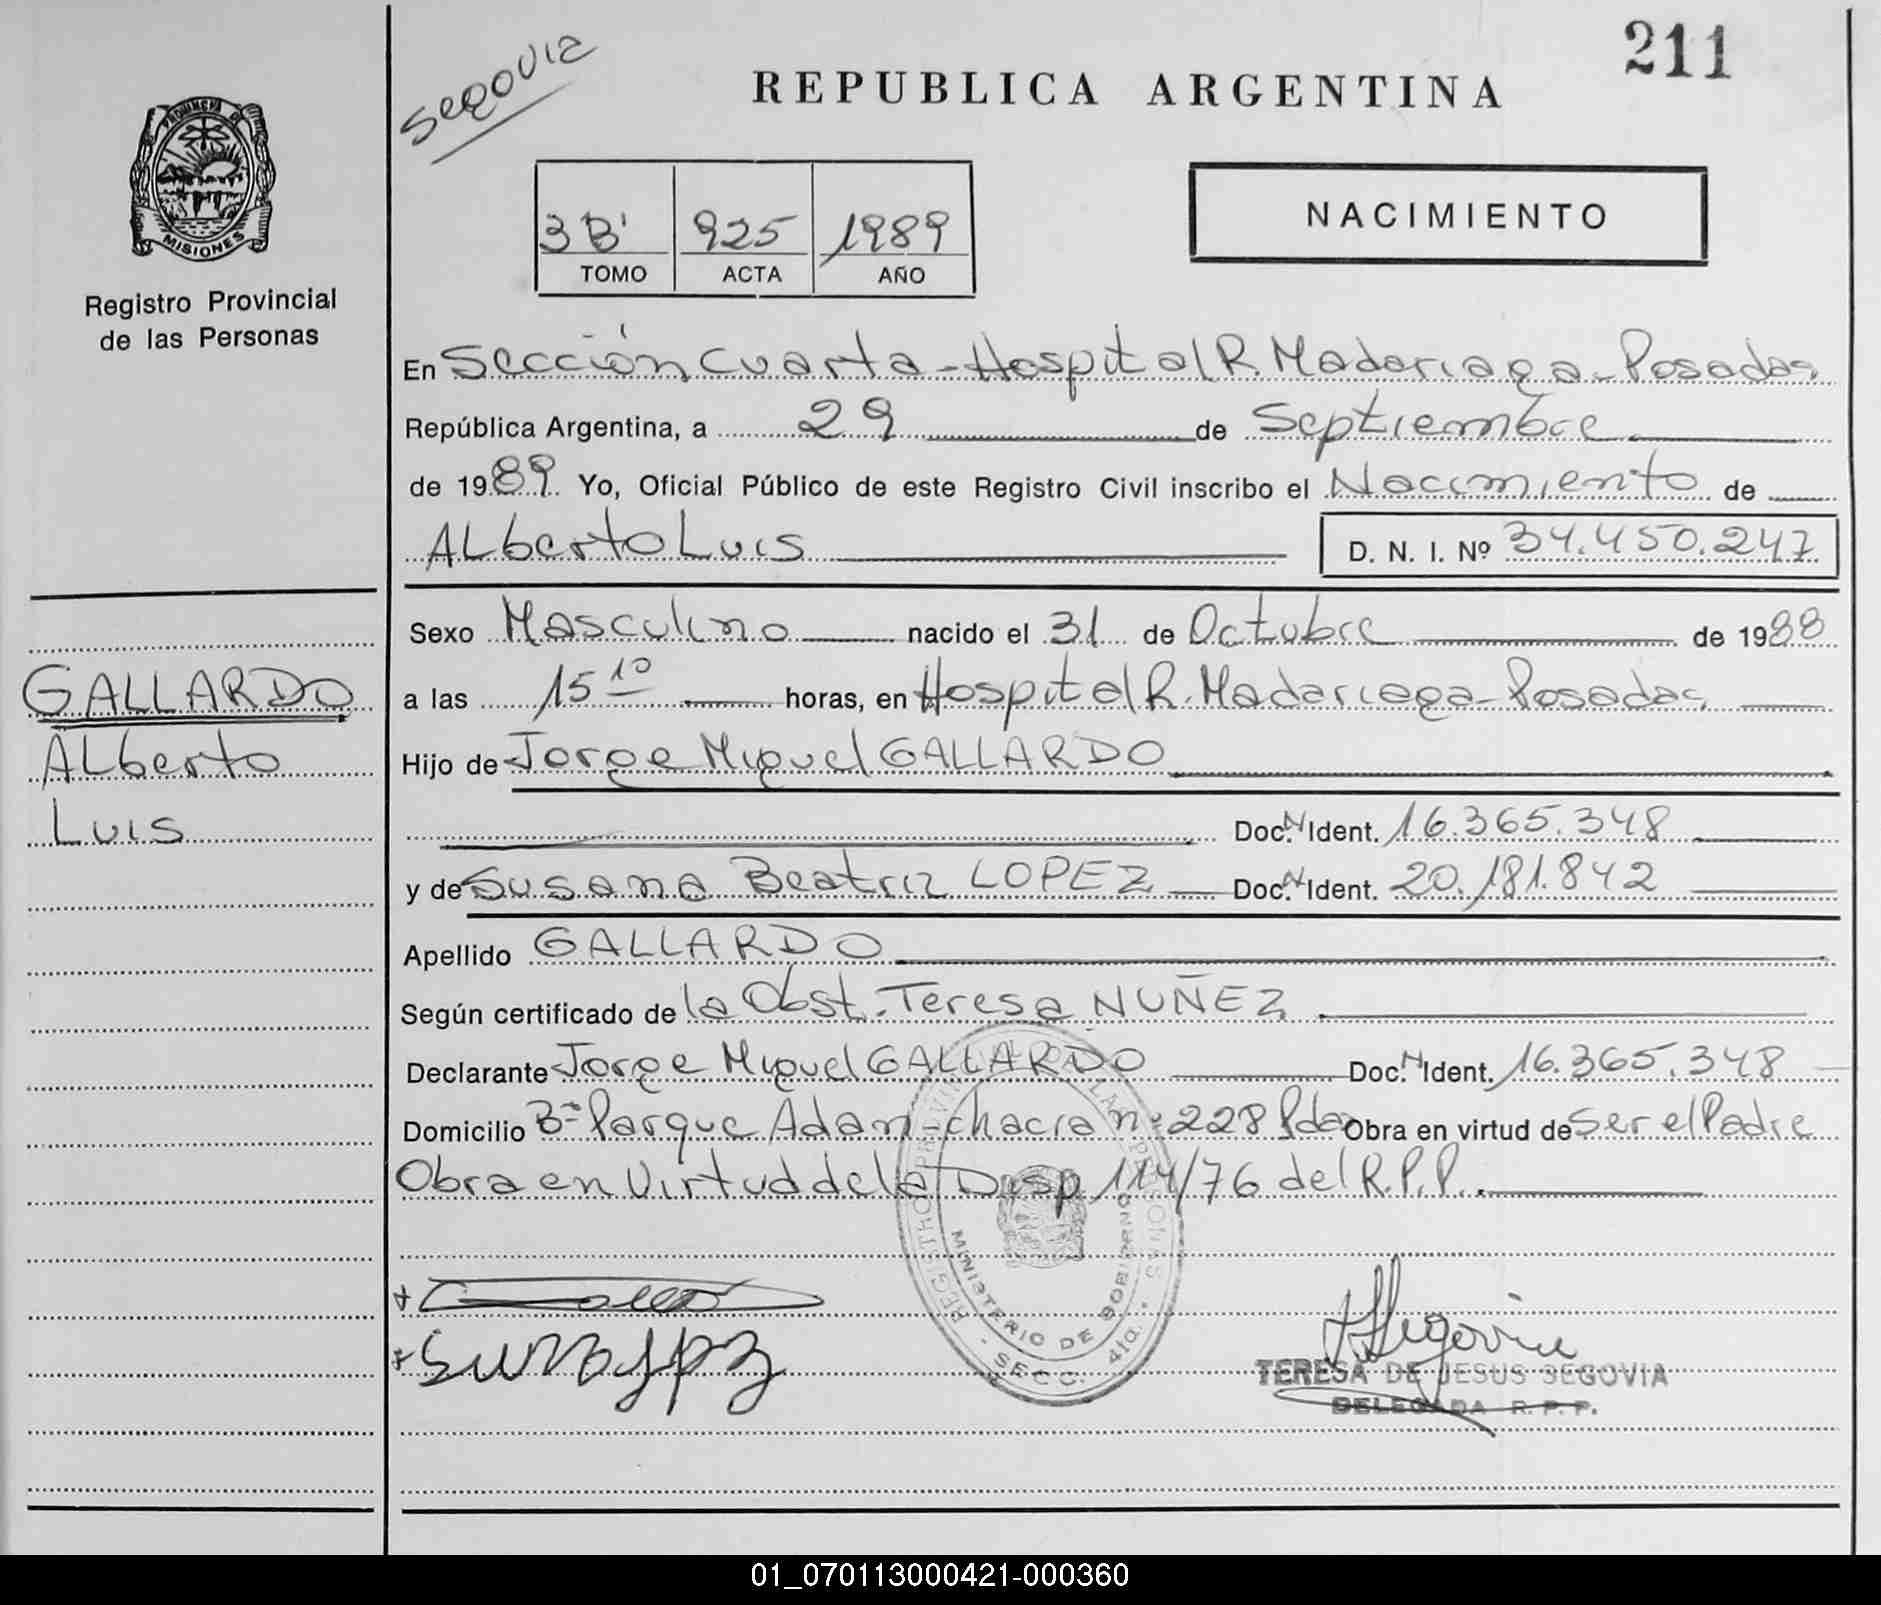 211
Segovia
REPUBLICA ARGENTINA
PROVINCIA DE
MISIONES
Registro Provincial
de las Personas
3 B' 925 1989
TOMO ACTA AÑO
NACIMIENTO
En Sección Cuarta - Hospital R. Madariaga - Posadas
República Argentina, a 29 de Septiembre
de 1989 Yo, Oficial Público de este Registro Civil inscribo el Nacimiento de
Alberto Luis D. N. I. Nº 34.450.247
Sexo Masculino nacido el 31 de Octubre de 1988
GALLARDO
Alberto
Luis
a las 15 10 horas, en Hospital R. Madariaga - Posadas
Hijo de Jorge Miguel GALLARDO
Doc. N Ident. 16.365.348
y de Susana Beatriz LOPEZ Doc. N Ident. 20.181.842
Apellido GALLARDO
Según certificado de la Obst. Teresa NUÑEZ
Declarante Jorge Miguel GALLARDO Doc. N Ident. 16.365.348
Domicilio Bº Parque Adam - chacra nº 228 Pdas Obra en virtud de Ser el Padre
Obra en Virtud de la Disp 114/76 del R.P.P.
REGISTRO PROVINCIAL DE LAS PERSONAS
MINISTERIO DE GOBIERNO
- SECC. 4ta. -
TERESA DE JESUS SEGOVIA
DELEGADA R. P. P.
01_070113000421-000360